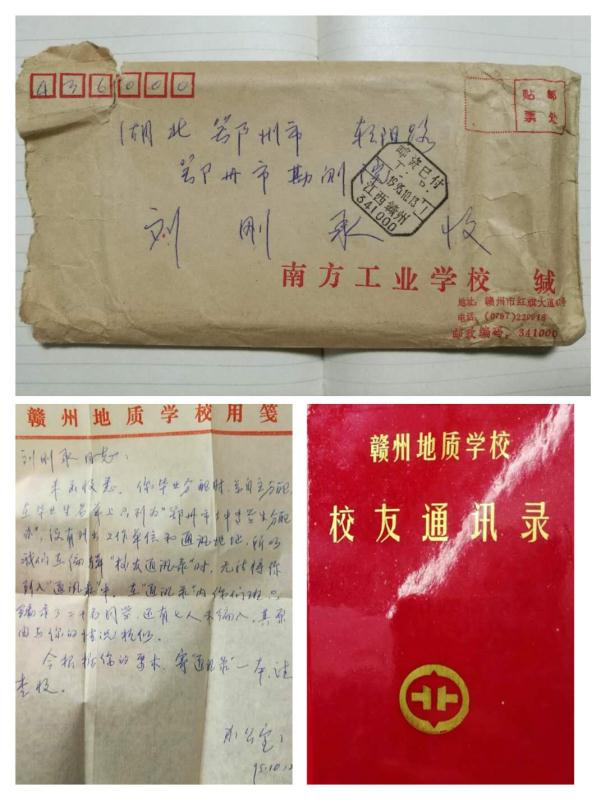 436000
贴 邮
票 处
湖北 鄂州市
鄂州市勘测
邮资已付
1995.10.13
江西赣州
341000
刘刚永 收
南方工业学校 缄
地址：赣州市红旗大道
电话：(0797)
邮政编码：341000
赣州地质学校用笺
刘刚永同志：
来函收悉。你毕业分配时，
在毕业生名单上只列为“鄂州市大中专学生分配
办”，没有列出工作单位和通讯地址，所以
我们在编辑“校友通讯录”时，无法将你
列入“通讯录”中。在“通讯录”内你们班只
编录了三十名同学，还有七人未编入，其原
由与你的情况相似。
今根据你的要求，寄“通讯录”一本，请
查收。
办公室
95.10.12
赣州地质学校
校友通讯录